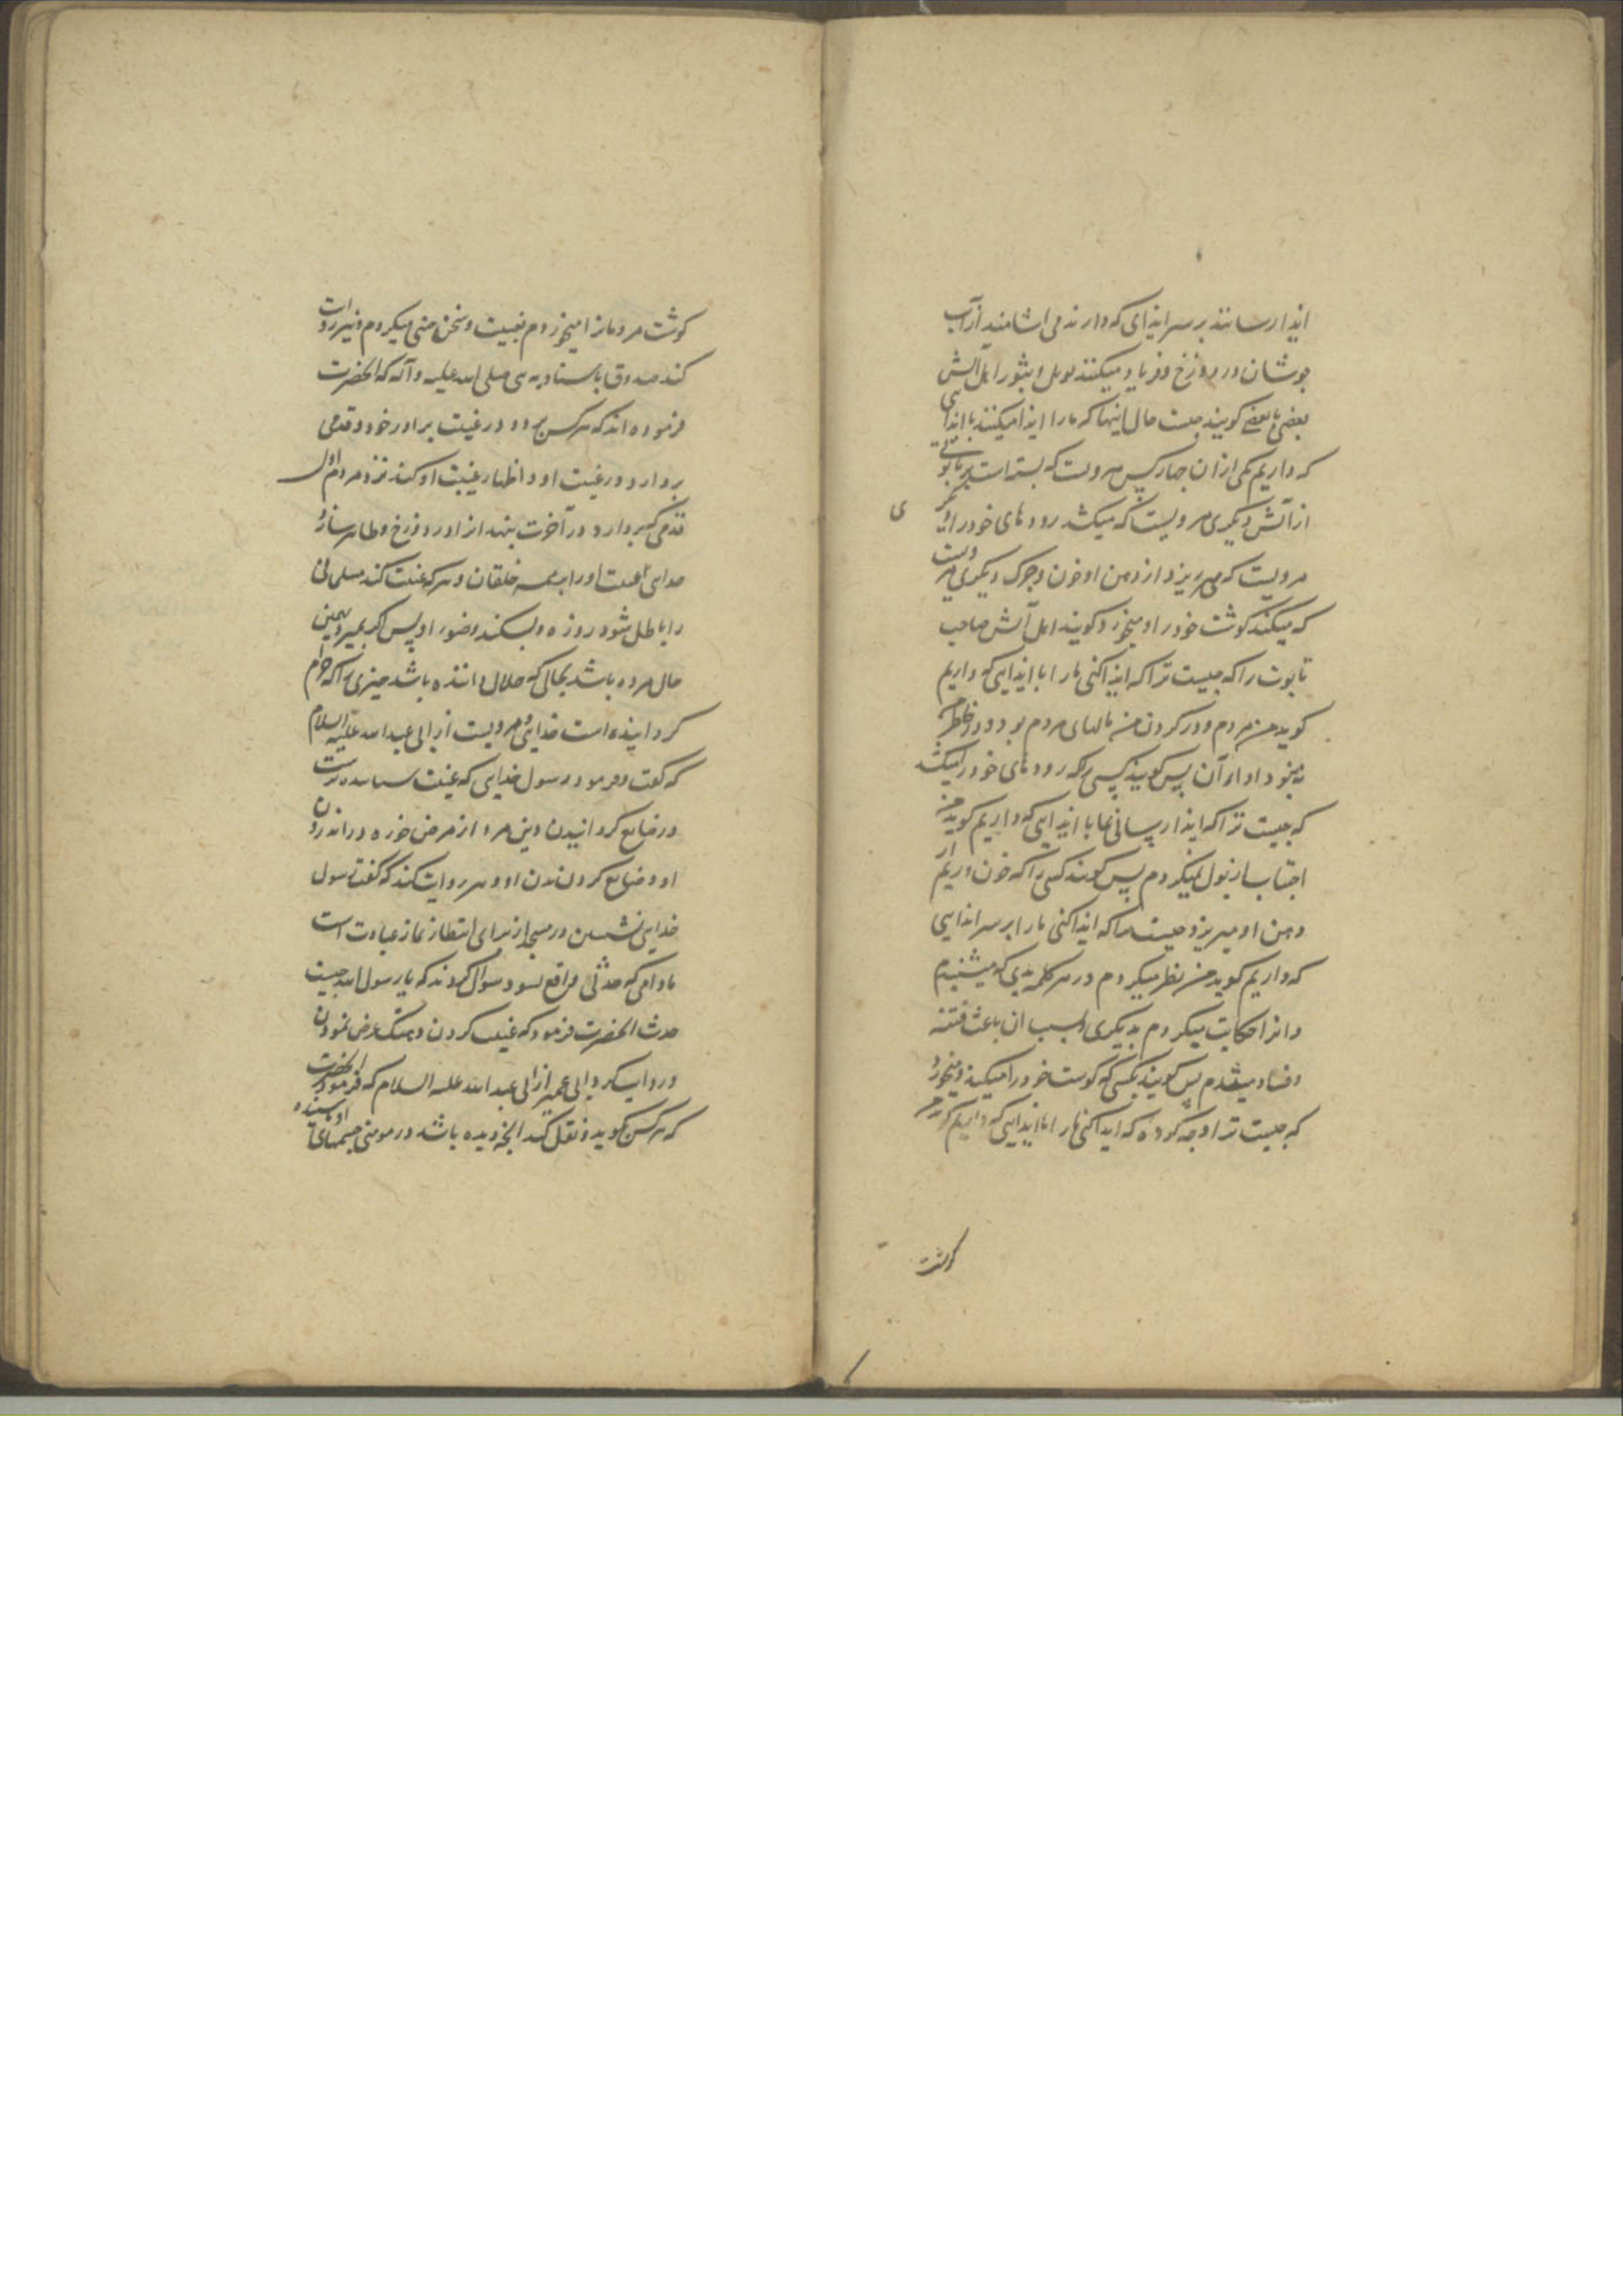 ایذا رسانند بر سر ایذای که دارند می اشامند از آب
جوشان در دوزخ و فریاد میکنند بویل و ثبور اهل آتش
بعضی با بعضی کویند چیست حال اینها که ما را ایذا میکنند با ایذایی
که داریم یکی از ان چهار کس مردیست که بسته است بر تابوتی
از آتش دیکری مردیست که میکشد رودهای خود را و
مردیست که میریزد از دهن او خون و چرک و دیکری مردیست
که میکند کوشت خود را و میخورد کویند اهل آتش صاحب
تابوت را که چیست ترا که ایذا کنی ما را با ایذایی که داریم
کوید من مردم و در کردن من مالهای مردم بود و در خاطرم
نبود اداء آن پس کویند کسی را که رودهای خود را میکشد
که چیست ترا که ایذا رسانی بما با ایذایی که داریم کوید من
اجتناب از بول نمیکردم پس کویند کسی را که خون و ریم از
دهن او میریزد چیست که ایذا کنی ما را بر سر ایذایی
که داریم کوید من نظر میکردم در هر کلمه بدی که میشنیدم
و انرا حکایت میکردم بدیکری و بسبب ان باعث فتنه
و فساد میشدم پس کویند بکسی که کوشت خود را میکند و میخورد
که چیست ترا و چه کرده که ایذا کنی ما را با ایذایی که داریم کوید من
کوشت
کوشت مردمانرا میخوردم بغیبت و سخن چینی میکردم و نیز روایت
کند صدوق باسناد به نبی صلی الله علیه و آله که انحضرت
فرموده اند که هر کس برود در غیبت برادر خود و قدمی
بردارد در غیبت او و اظهار غیبت او کند نزد مردم اول
قدمی که بردارد در آخرت بیندازد او را در دوزخ و ظاهر سازد
خدای او را بر همه خلقان و هر که غیبت کند مسلمانی
را باطل شود روزه و بشکند وضوء او پس اکر بمیرد بهمین
حال مرده باشد بحالی که حلال داننده باشد چیزی را که حرام
کردانیده است خدای و مرویست از ابی عبد الله علیه السلام
که کفت و فرمود رسول خدایی که غیبت
در ضایع کردانیدن دین مرد از مرض خوره در اندرون
او و ضایع کردن بدن او و نیز روایت کند که کفت رسول
خدای نشستن در مسجد از برای انتظار نماز عبادت است
مادامی که حدثی واقع نشود سوال کردند که یا رسول الله چیست
حدث انحضرت فرمود که غیبت کردن و هتک عرض نمودن
و روایت کرد ابی عمیر از ابی عبد الله علیه السلام که فرمود انحضرت
که هر کس بکوید و نقل کند انچه دیده باشد در مومنی چشمهای او و شنیده